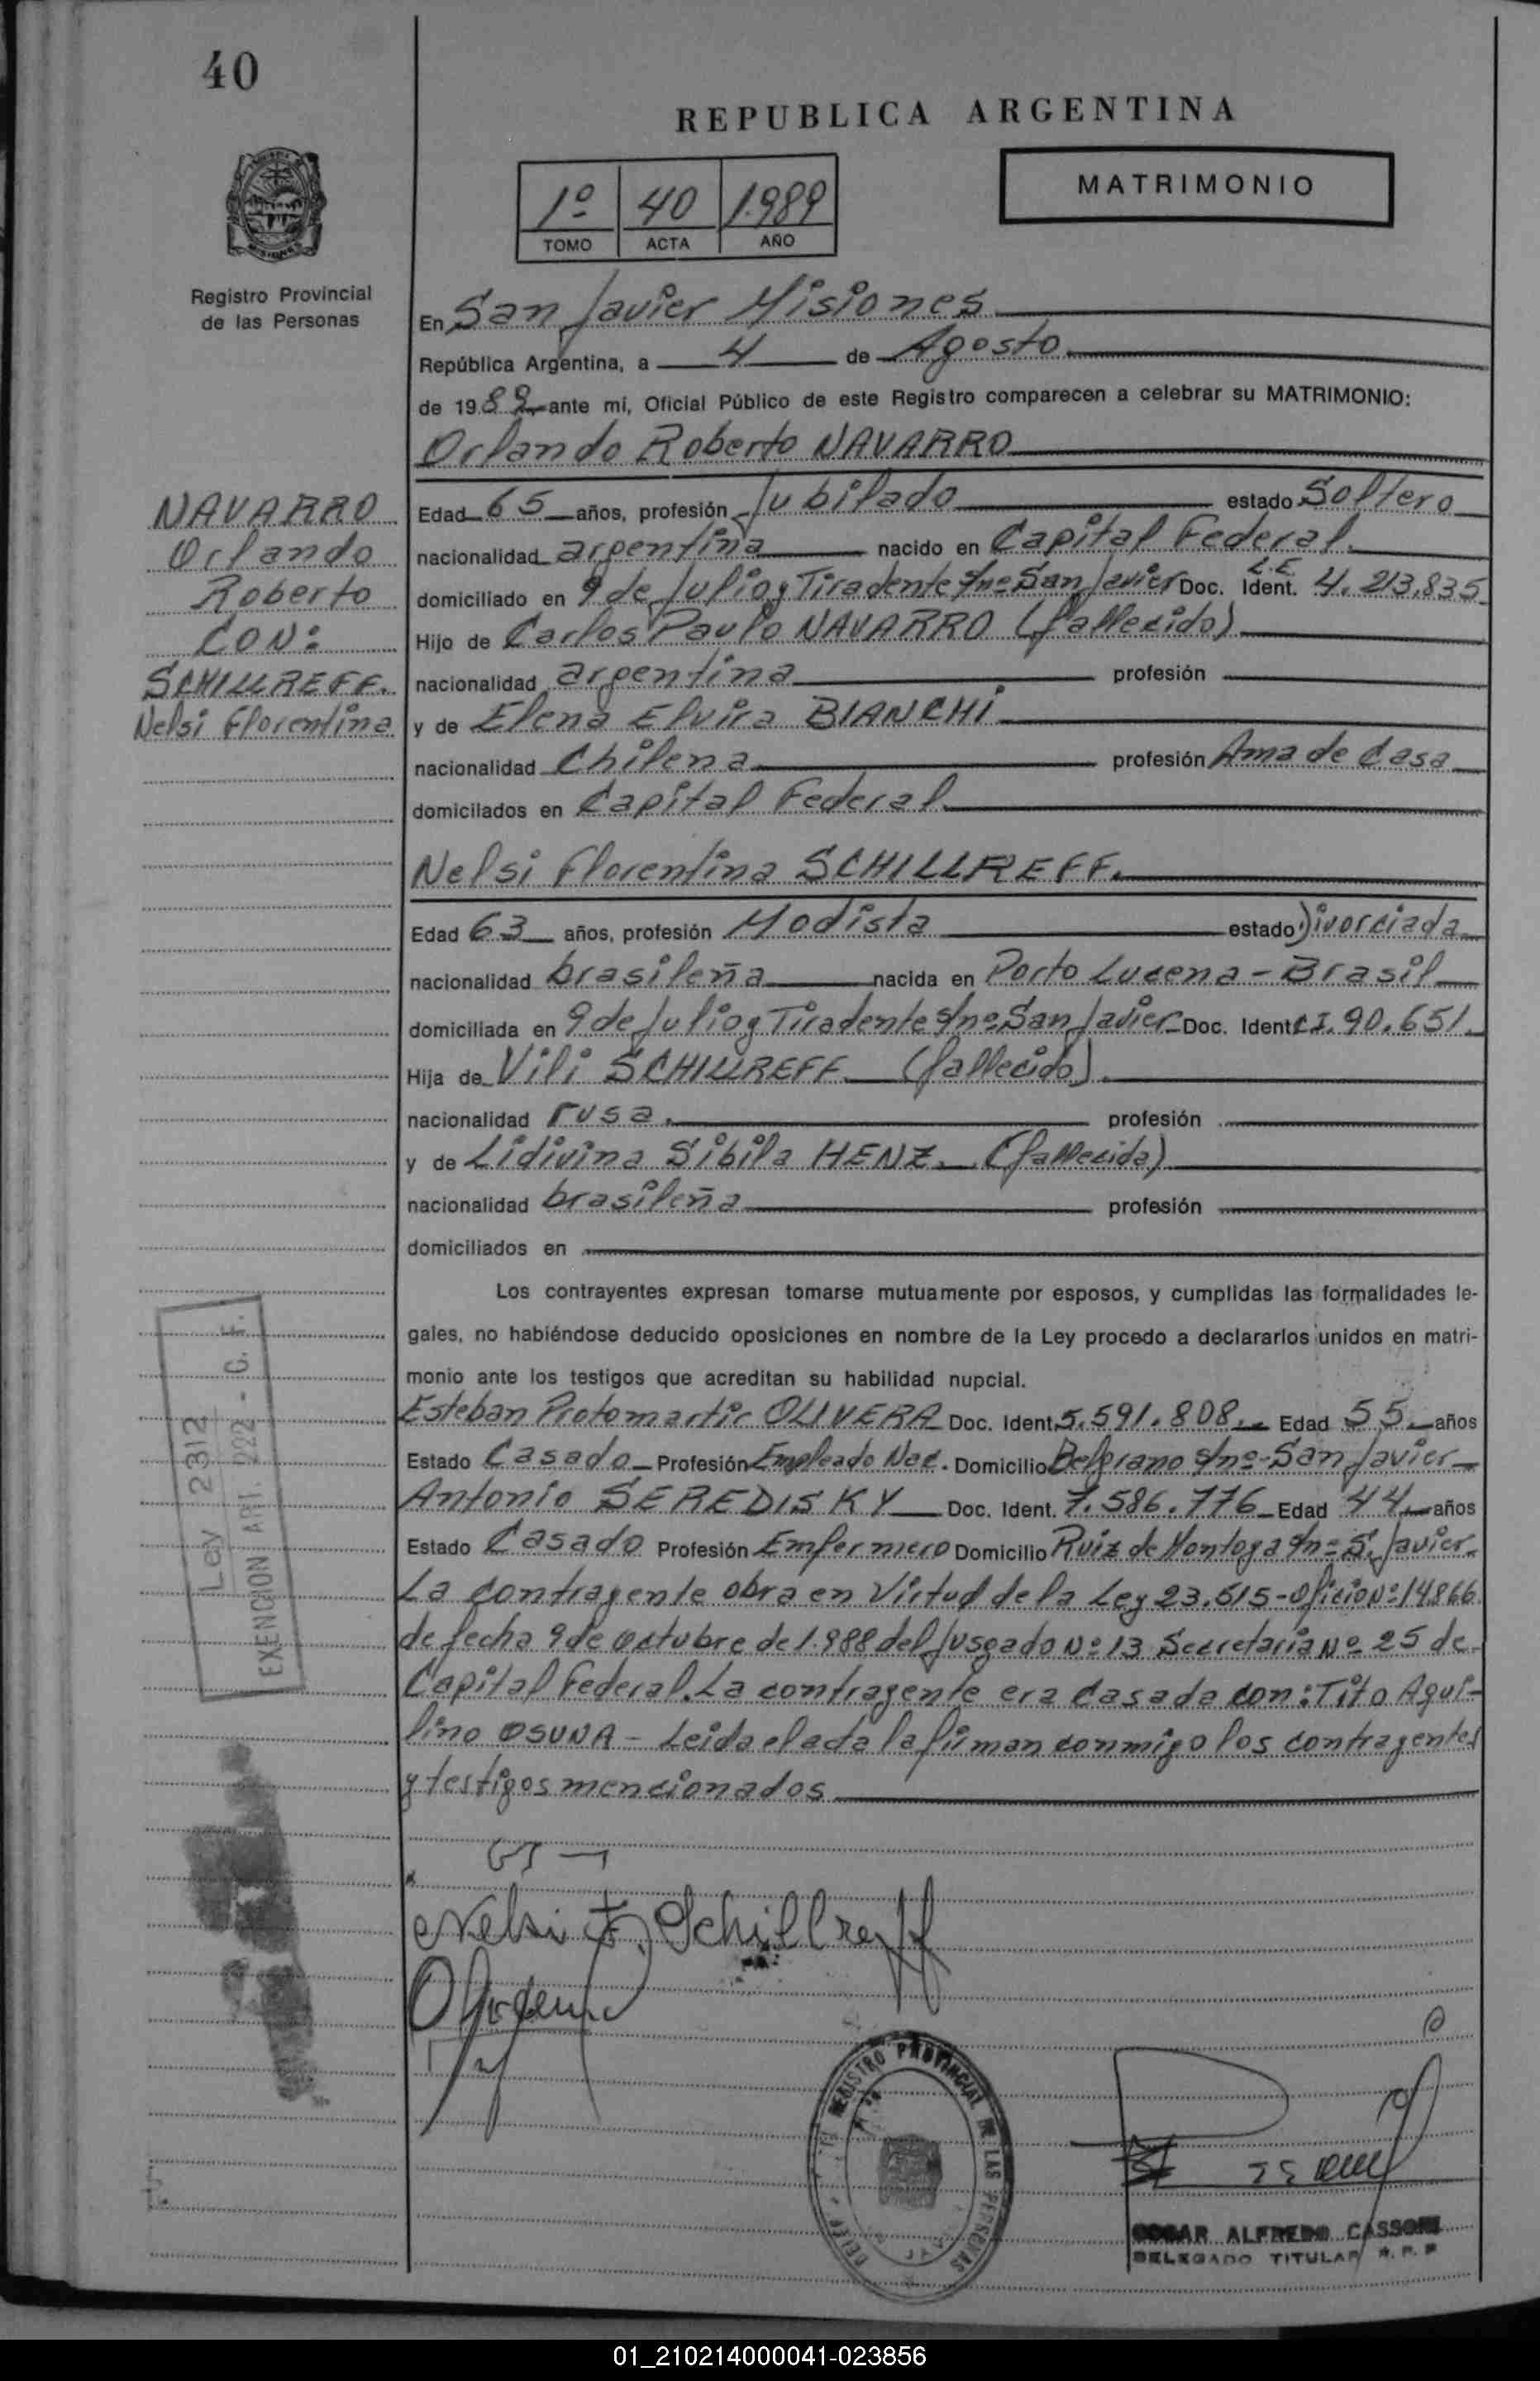 40
REPUBLICA ARGENTINA
MATRIMONIO
1º 40 1.989
TOMO ACTA AÑO
Registro Provincial
de las Personas
En San Javier Misiones
República Argentina, a 4 de Agosto
de 1989 ante mí, Oficial Público de este Registro comparecen a celebrar su MATRIMONIO:
Orlando Roberto NAVARRO
NAVARRO
Orlando
Roberto
CON:
SCHILLREFF.
Nelsi Florentina
Edad 65 años, profesión Jubilado estado Soltero
nacionalidad argentina nacido en Capital Federal.
domiciliado en 9 de Julio y Tiradente s/nº San Javier Doc. Ident. L.E 4.213.835
Hijo de Carlos Paulo NAVARRO (fallecido)
nacionalidad argentina profesión
y de Elena Elvira BIANCHI
nacionalidad Chilena profesión Ama de Casa
domicilados en Capital Federal
Nelsi Florentina SCHILLREFF.
Edad 63 años, profesión Modista estado Divorciada
nacionalidad brasileña nacida en Porto Lucena - Brasil
domiciliada en 9 de Julio y Tiradente s/nº San Javier Doc. Ident C.I. 90.651
Hija de Vili SCHILLREFF (fallecido).
nacionalidad rusa. profesión
y de Lidivina Sibila HENZ. (fallecida)
nacionalidad brasileña profesión
domiciliados en
Los contrayentes expresan tomarse mutuamente por esposos, y cumplidas las formalidades le-
gales, no habiéndose deducido oposiciones en nombre de la Ley procedo a declararlos unidos en matri-
monio ante los testigos que acreditan su habilidad nupcial.
Esteban Protomartir OLIVERA Doc. Ident. 5.591.808. Edad 55 años
Estado Casado Profesión Empleado Nac. Domicilio Belgrano s/nº San Javier
Antonio SEREDISKY Doc. Ident. 7.586.776 Edad 44 años
Estado Casado Profesión Enfermero Domicilio Ruiz de Montoya s/nº S. Javier
La contrayente obra en Virtud de la Ley 23.515 - Oficio Nº 14866
de fecha 9 de Octubre de 1.988 del Jusgado Nº 13 Secretaria Nº 25 de
Capital Federal. La contrayente era Casada con: Tito Aqui-
lino OSUNA - Leida el acta la firman conmigo los contrayentes
y testigos mencionados
Ley 2312
EXENCION ART. 222 - C. F.
Nelsi F. Schillreff
REGISTRO PROVINCIAL DE LAS PERSONAS
ALFREDO CASSONI
DELEGADO TITULAR R. P. P
01_210214000041-023856